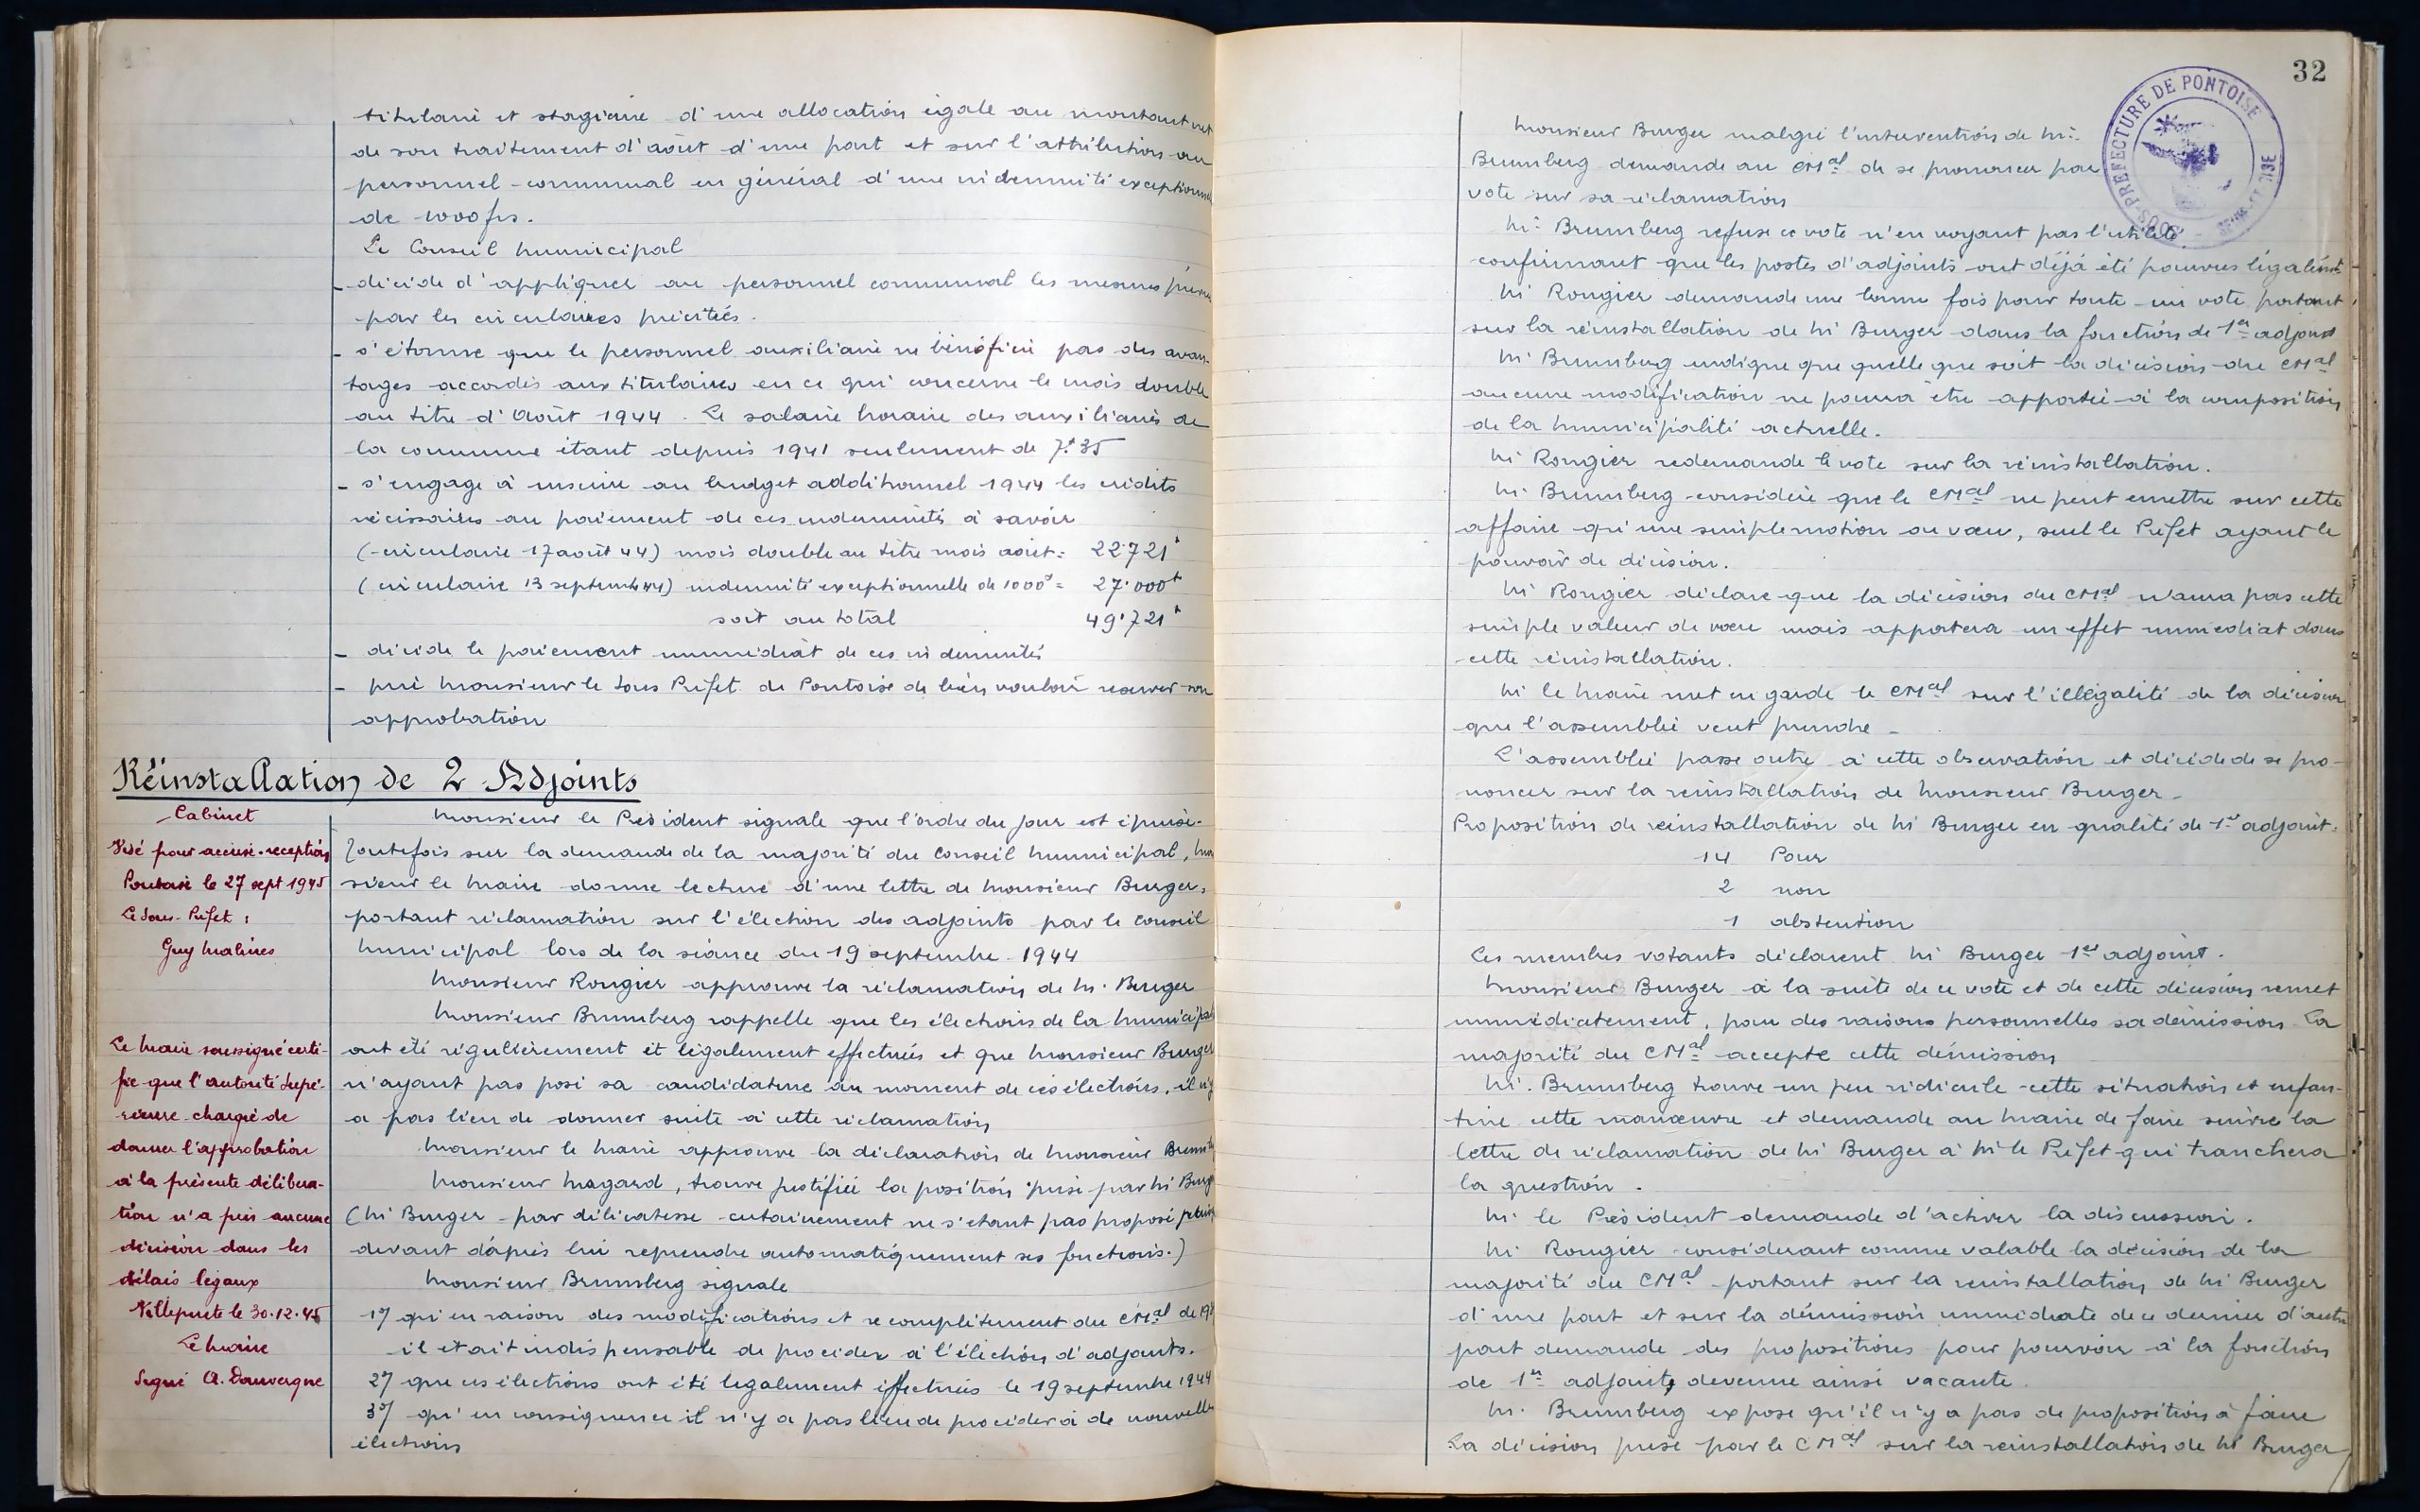 titulaire et stagiaire d'une allocation égale au montant net
de son traitement d'août d'une part et sur l'attribution au
personnel communal en général d'une indemnité exceptionn
de 1000 frs.
Le Conseil Municipal
- décide d'appliquer au personnel communal les mesures
par les circulaires précitées.
- s'étonne que le personnel auxiliaire ne bénéficie pas des avan-
tages accordés aux titulaires en ce qui concerne le mois double
au titre d'Août 1944. Le salaire horaire des auxiliaires de
la commune étant depuis 1941 seulement de 7f35
- s'engage à inscrire au budget additionnel 1944 les crédits
nécessaires au paiement de ces indemnités à savoir
(circulaire 17 août 44) mois double au titre mois août = 22.721f
(circulaire 13 septembre 44) indemnité exceptionnelle de 1000f = 27.000f
soit au total 49.721f
- décide le paiement immédiat de ces indemnités
- prie Monsieur le Sous Préfet de Pontoise de bien vouloir réserver son
approbation
Réinstallation de 2 Adjoints
Cabinet
Visé pour accusé-réception
Pontoise le 27 sept 1945
Le Sous-Préfet :
Guy Malines
Le Maire soussigné certi-
fie que l'autorité supé-
rieure chargée de
donner l'approbation
à la présente délibéra-
tion n'a pris aucune
décision dans les
délais légaux
Villepinte le 30.12.45
Le Maire
Signé A. Dauvergne
Monsieur le Président signale que l'ordre du jour est épuisé.
Toutefois sur la demande de la majorité du Conseil Municipal, Mon
sieur le Maire donne lecture d'une lettre de Monsieur Burger,
portant réclamation sur l'élection des adjoints par le Conseil
Municipal lors de la séance du 19 septembre 1944
Monsieur Rougier approuve la réclamation de M. Burger
Monsieur Brumberg rappelle que les élections de la Municipal
ont été régulièrement et légalement effectuées et que Monsieur Burger
n'ayant pas posé sa candidature au moment de ces élections, il n'y
a pas lieu de donner suite à cette réclamation
Monsieur le Maire approuve la déclaration de Monsieur Brumb
Monsieur Magard, trouve justifiée la position prise par Mr Burg
(Mr Burger par délicatesse certainement ne s'étant pas proposé
devant d'après lui reprendre automatiquement ses fonctions.)
Monsieur Brumberg signale
1°/ qu'en raison des modifications et recomplètement du CMal de 19
il était indispensable de procéder à l'élection d'adjoints.
2°/ que ces élections ont été légalement effectuées le 19 septembre 1944
3°/ qu'en conséquence il n'y a pas lieu de procéder à de nouvelles
élections
32
SOUS-PRÉFECTURE DE PONTOISE
Monsieur Burger malgré l'intervention de Mr
Brumberg demande au CMal de se prononcer par
vote sur sa réclamation
Mr Brumberg refuse ce vote n'en voyant pas l'utilité
confirmant que les postes d'adjoints ont déjà été pourvus légalemt
Mr Rougier demande une bonne fois pour toute un vote portant
sur la réinstallation de Mr Burger dans la fonction de 1er adjoint
Mr Brumberg indique que quelle que soit la décision du CMal
aucune modification ne pourra être apportée à la composition
de la Municipalité actuelle.
Mr Rougier redemande le vote sur la réinstallation.
Mr Brumberg considère que le CMal ne peut émettre sur cette
affaire qu'une simple motion ou vœu, seul le Préfet ayant le
pouvoir de décision.
Mr Rougier déclare que la décision du CMal n'aura pas cette
simple valeur de vœu mais apportera un effet immédiat dans
cette réinstallation.
Mr le Maire met en garde le CMal sur l'illégalité de la décision
que l'assemblée veut prendre -
L'assemblée passe outre à cette observation et décide de se pro-
noncer sur la réinstallation de Monsieur Burger -
Proposition de réinstallation de Mr Burger en qualité de 1er adjoint.
14 Pour
2 non
1 abstention
Les membres votants déclarent Mr Burger 1er adjoint.
Monsieur Burger à la suite de ce vote et de cette décision remet
immédiatement, pour des raisons personnelles sa démission La
majorité du CMal accepte cette démission
Mr. Brumberg trouve un peu ridicule cette situation et enfan-
tine cette manœuvre et demande au Maire de faire suivre la
lettre de réclamation de Mr Burger à Mr le Préfet qui tranchera
la question.
Mr le Président demande d'activer la discussion.
Mr Rougier considérant comme valable la décision de la
majorité du CMal portant sur la réinstallation de Mr Burger
d'une part et sur la démission immédiate de ce dernier d'autre
part demande des propositions pour pourvoir à la fonction
de 1er adjoint, devenue ainsi vacante.
Mr. Brumberg expose qu'il n'y a pas de proposition à faire
La décision prise par le CMal sur la réinstallation de Mr Burger